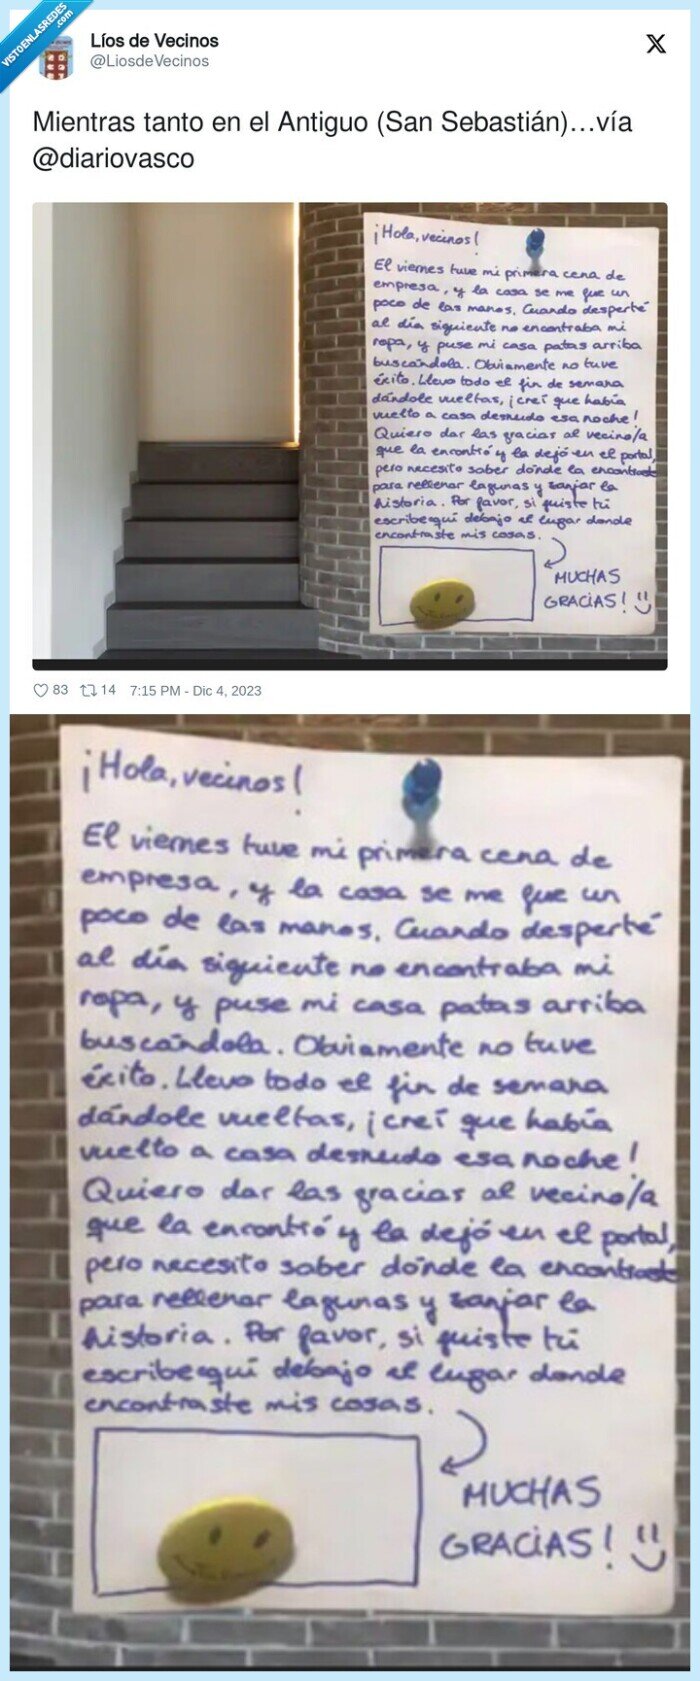 VISTOENLASREDES
.com
Líos de Vecinos
@LiosdeVecinos
X
Mientras tanto en el Antiguo (San Sebastián)...vía
@diariovasco
¡Hola, vecinos!
El viernes tuve mi primera cena de
empresa, y la cosa se me fue un
poco de las manos. Cuando desperté
al día siguiente no encontraba mi
ropa, y puse mi casa patas arriba
buscándola. Obviamente no tuve
éxito. Llevo todo el fin de semana
dándole vueltas, ¡creí que había
vuelto a casa desnudo esa noche!
Quiero dar las gracias al vecino/a
que la encontró y la dejó en el portal,
pero necesito saber dónde la encontraste
para rellenar lagunas y zanjar la
historia. Por favor, si fuiste tú
escribe aquí debajo el lugar donde
encontraste mis cosas.
MUCHAS
GRACIAS!
83 14 7:15 PM - Dic 4, 2023
¡Hola, vecinos!
El viernes tuve mi primera cena de
empresa, y la cosa se me fue un
poco de las manos. Cuando desperté
al día siguiente no encontraba mi
ropa, y puse mi casa patas arriba
buscándola. Obviamente no tuve
éxito. Llevo todo el fin de semana
dándole vueltas, ¡creí que había
vuelto a casa desnudo esa noche!
Quiero dar las gracias al vecino/a
que la encontró y la dejó en el portal,
pero necesito saber dónde la encontraste
para rellenar lagunas y zanjar la
historia. Por favor, si fuiste tú
escribe aquí debajo el lugar donde
encontraste mis cosas.
MUCHAS
GRACIAS!